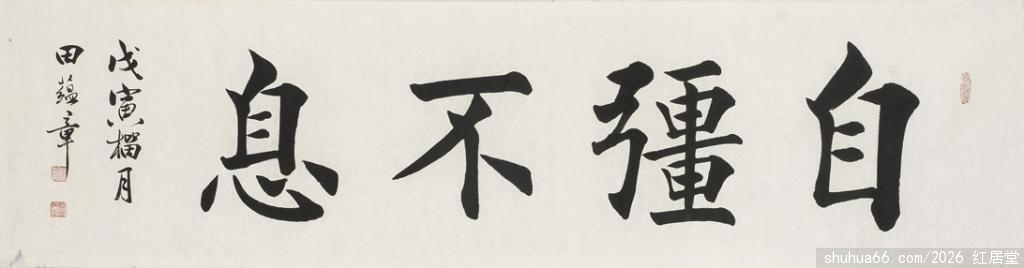 自彊不息
戊寅榴月
田蕴章
shuhua66.com/2026 红居堂